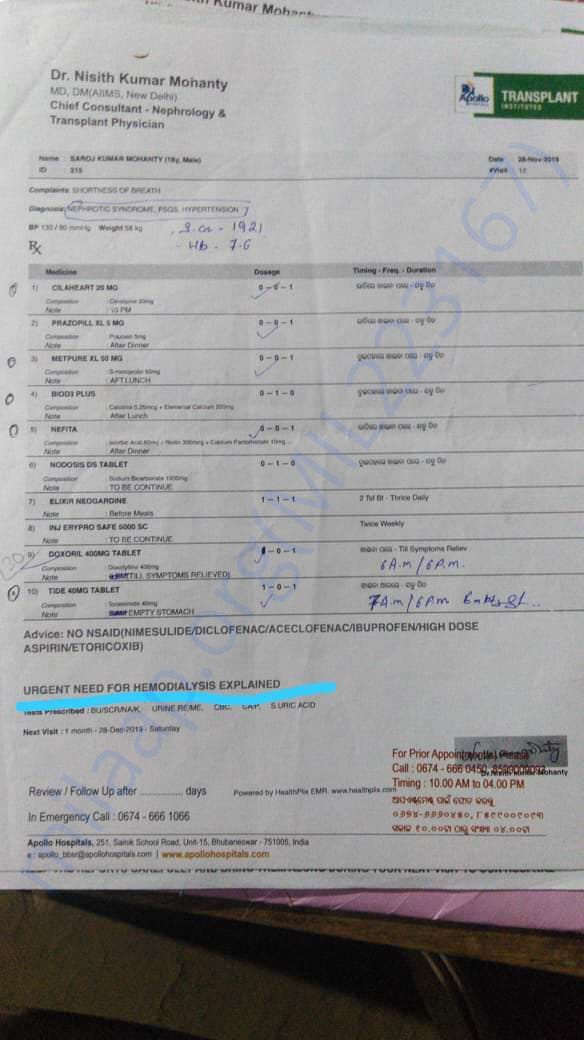 Kumar Mohant
Dr. Nisith Kumar Mohanty
MD, DM(AIIMS, New Delhi)
Chief Consultant - Nephrology &
Transplant Physician
Apollo TRANSPLANT
INSTITUTES
Name SAROJ KUMAR MOHANTY (18y, Male) Date 28-Nov-2019
ID 215 #Visit
Complaints SHORTNESS OF BREATH
Diagnosis: NEPHROTIC SYNDROME, FSGS, HYPERTENSION
BP 130 / 80 mmHg Weight 58 kg
Hb - 7.6
Rx
Medicine Dosage Timing - Freq. - Duration
1) CILAHEART 20 MG 0 - 0 - 1
Composition : Cilnidipine 20mg
Note : 10 PM
2) PRAZOPILL XL 5 MG 0 - 0 - 1
Composition : Prazosin 5mg
Note : After Dinner
3) METPURE XL 50 MG 0 - 0 - 1
Composition : S-metoprolol 50mg
Note : AFT.LUNCH
4) BIOD3 PLUS 0 - 1 - 0
Composition : Calcitriol 0.25mcg + Elemental Calcium 500mg
Note : After Lunch
5) NEFITA 0 - 0 - 1
Note : After Dinner
6) NODOSIS DS TABLET 0 - 1 - 0
Composition : Sodium Bicarbonate 1000mg
Note : TO BE CONTINUE
7) ELIXIR NEOGARDINE 1 - 1 - 1 2 Tsf Bt - Thrice Daily
Note : Before Meals
8) INJ ERYPRO SAFE 5000 SC Twice Weekly
Note : TO BE CONTINUE
9) DOXORIL 400MG TABLET - 0 - 1 - Till Symptoms Reliev
Composition : Doxofylline 400mg 6 A.m / 6 P.m.
Note (TILL SYMPTOMS RELIEVED)
10) TIDE 40MG TABLET 1 - 0 - 1
Composition : Torasemide 40mg 7 A.m / 6 P.m
Note EMPTY STOMACH
Advice: NO NSAID(NIMESULIDE/DICLOFENAC/ACECLOFENAC/IBUPROFEN/HIGH DOSE
ASPIRIN/ETORICOXIB)
URGENT NEED FOR HEMODIALYSIS EXPLAINED
Tests Prescribed : BU/SCR/NA/K, URINE RE/ME, CBC, CA/P, S.URIC ACID
Next Visit : 1 month - 28-Dec-2019 - Saturday
For Prior Appointment(s) Please
Call : 0674 - 666 0450, 8599009093
Dr Nisith Kumar Mohanty
Timing : 10.00 AM to 04.00 PM
Review / Follow Up after ............... days Powered by HealthPlix EMR. www.healthplix.com
In Emergency Call : 0674 - 666 1066
Apollo Hospitals, 251, Sainik School Road, Unit-15, Bhubaneswar - 751005, India
e : apollo_bbsr@apollohospitals.com | www.apollohospitals.com
milaap.org(MIL223167)